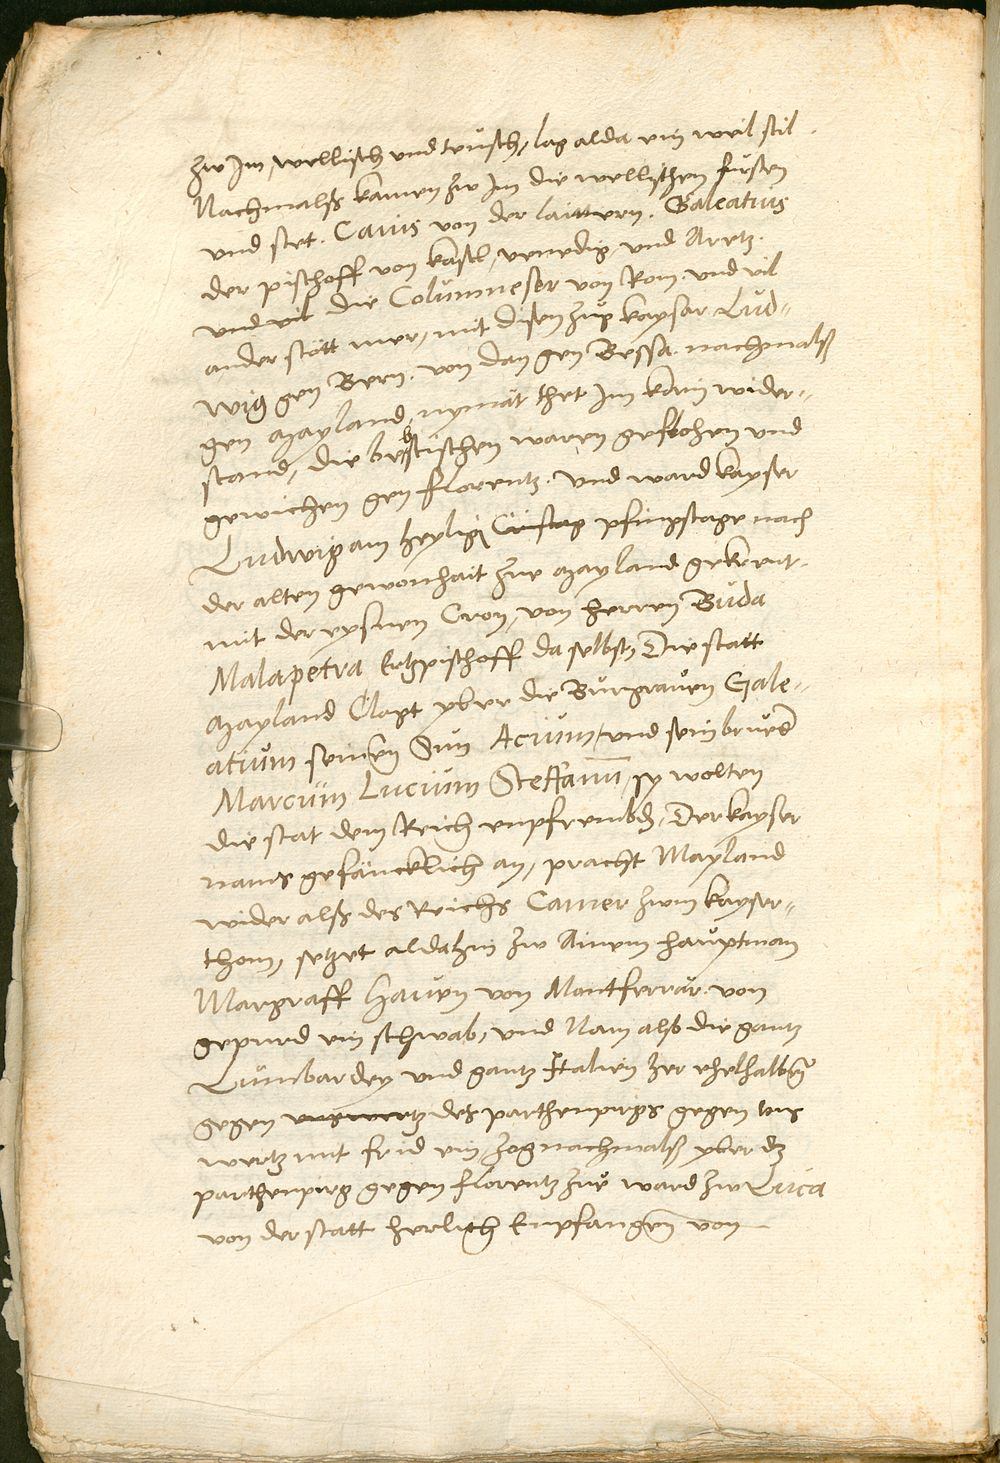 zw Im, wellisch und teusch, lag alda ein weil stil.
Nachmalß kamen zw Im die wellischen fürsten
und stet. Canis von der laittern. Galeatius
der pischoff von kastl, venedig und Aretz.
und vil die Columneser von Rom und vil
ander stött mer, mit disen zug kayser Lud-
wig gen Bern. von dan gen Bessa. nachmalß
gen Mayland, nymāt thet Im kain wider-
stand, die bebstischen waren geflohen und
gewichen gen florentz. und ward kayser
Ludwig am heylign Cristag pfingstage nach
der alten gewonhait zue Mayland gekrent.
mit der eysnen Cron, von herren Buda
Malapetra Ertzpischoff daselbst, Die statt
Mayland Clagt yber die Burgraven Gale-
atium seinen Sun Acium, und sein brueder
Marcum Lucium Steffanum, sy wolten
die stat dem Reich enpfrembdn, Der kayser
nams gefäncklich an, pracht Mayland
wider alß des Reichs Camer zum kayser-
thom, setzet aldahin zw Ainem hauptman
Margraff Hansen von Montferrar. von
gepurd ein schwab, und Nam alß die gantz
Lumbardey und gantz Italien zer ehelhalben
gegen unswertz des parthenpirgs gegen uns
wertz mit frid ein, zog nachmalß yber dz
parthenpirg gegen florentz zue ward zw Luca
von der statt herlich Empfangen von